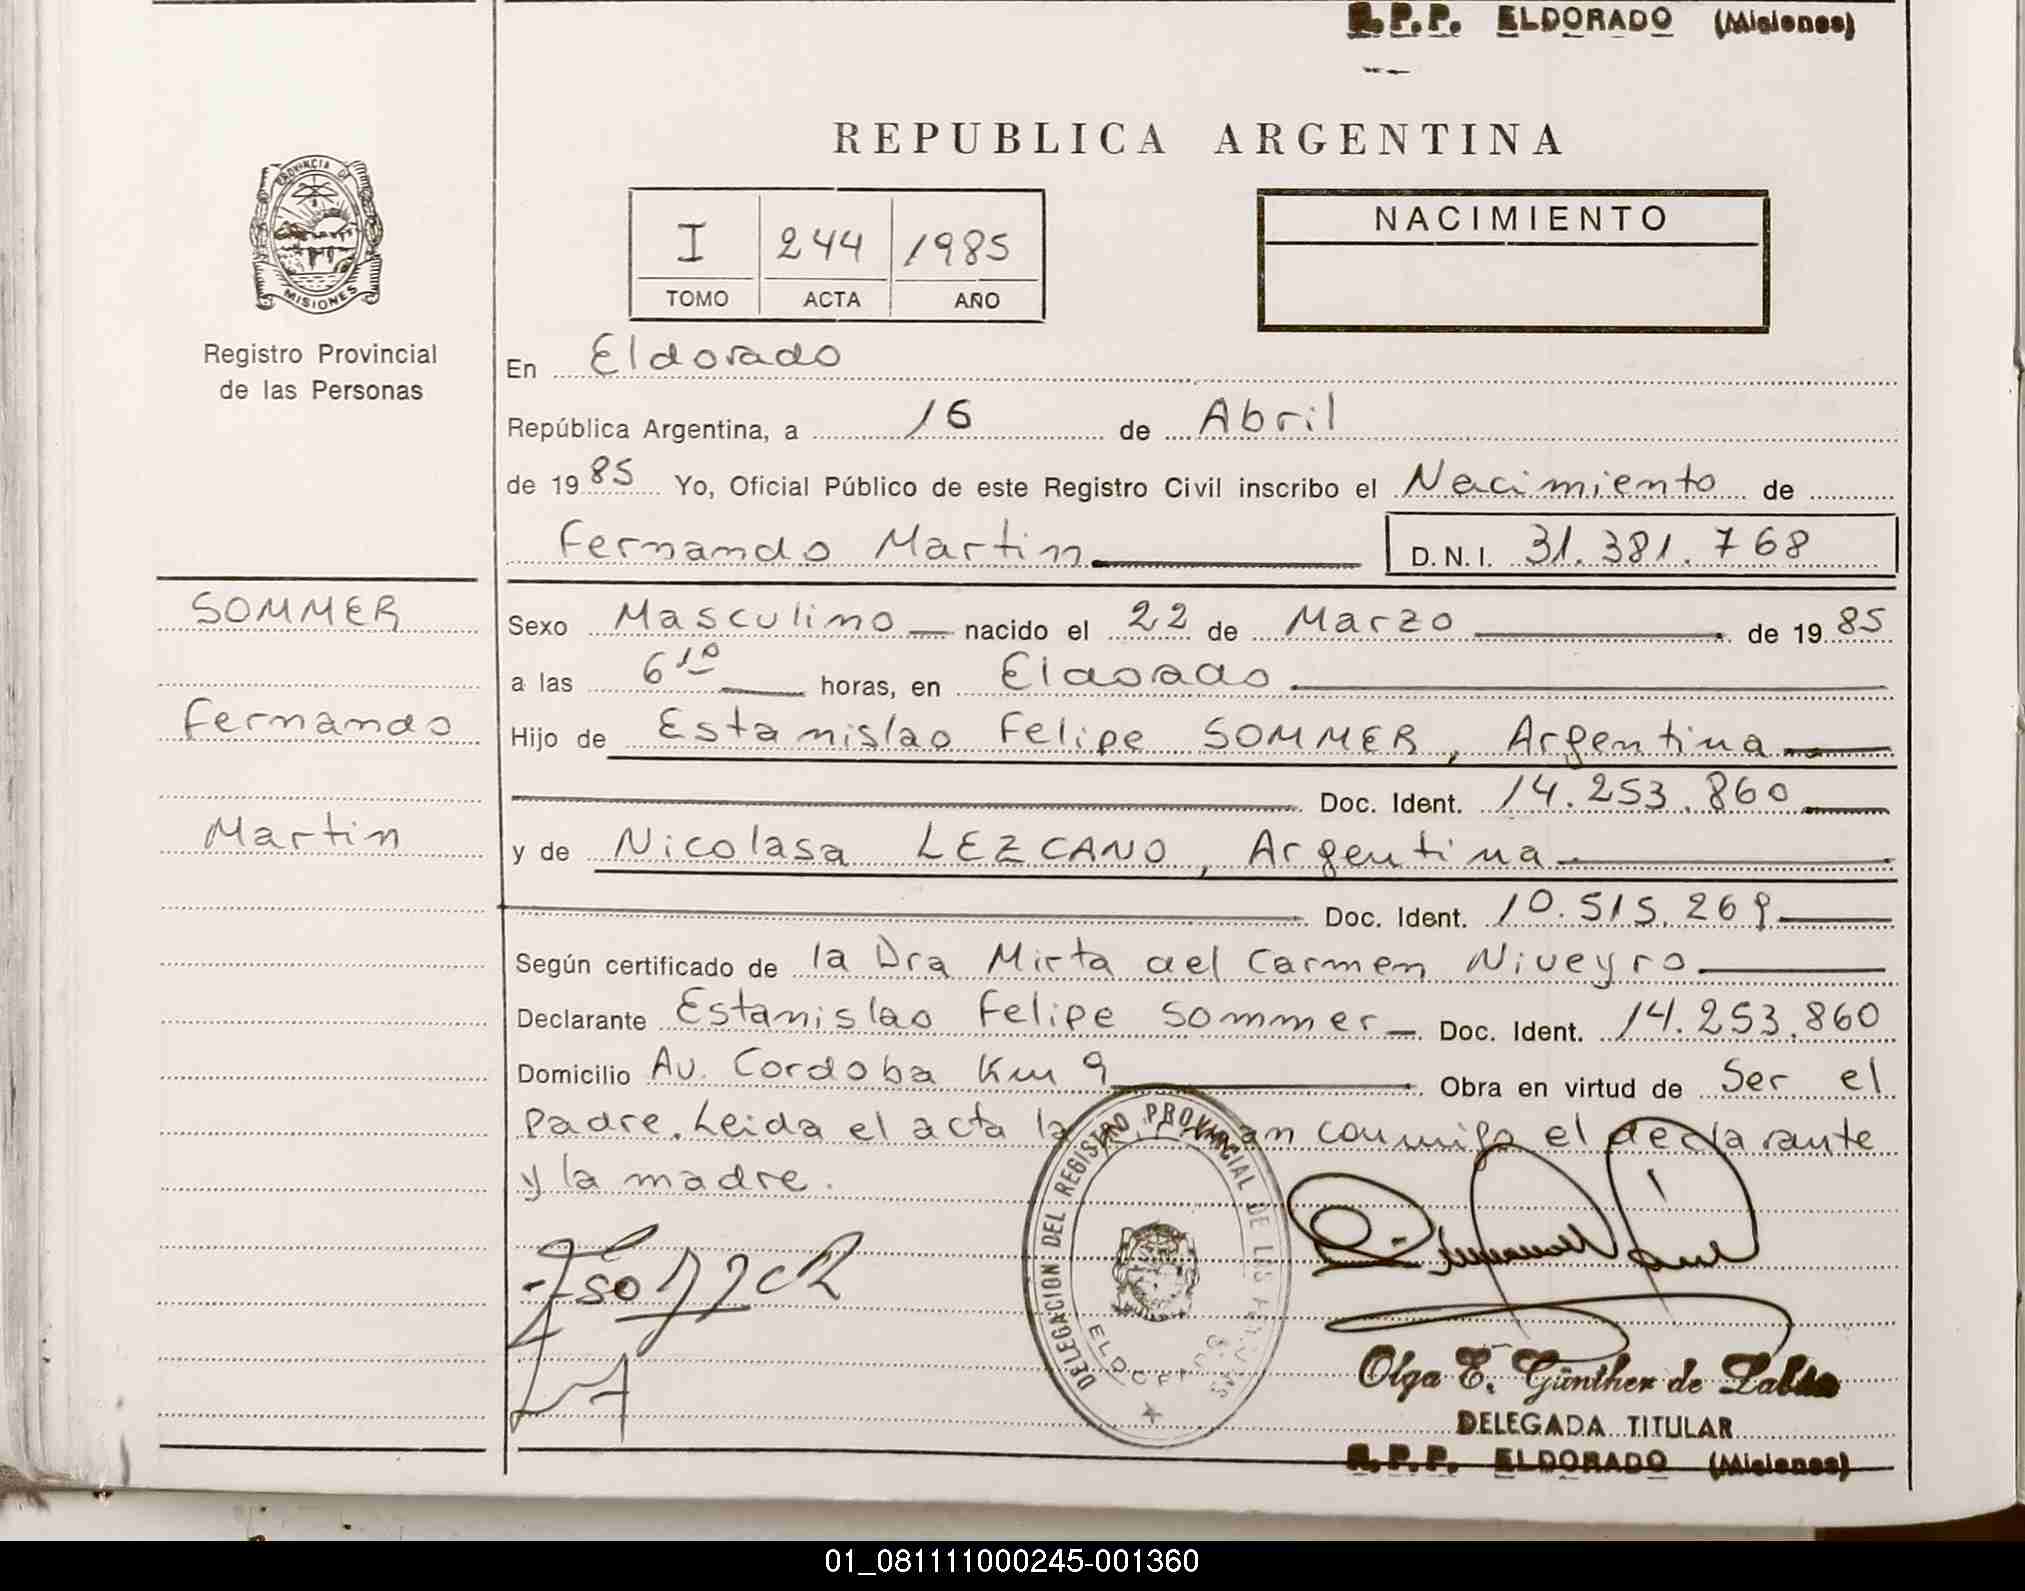 R.P.P. ELDORADO (Misiones)
REPUBLICA ARGENTINA
PROVINCIA DE
MISIONES
Registro Provincial
de las Personas
I 244 1985
TOMO ACTA AÑO
NACIMIENTO
En Eldorado
República Argentina, a 16 de Abril
de 1985 Yo, Oficial Público de este Registro Civil inscribo el Nacimiento de
Fernando Martin D.N.I. 31.381.768
SOMMER
Fernando
Martin
Sexo Masculino nacido el 22 de Marzo de 1985
a las 6 10 horas, en Eldorado
Hijo de Estanislao Felipe SOMMER, Argentina
Doc. Ident. 14.253.860
y de Nicolasa LEZCANO, Argentina
Doc. Ident. 10.515.269
Según certificado de la Dra Mirta del Carmen Niveyro
Declarante Estanislao Felipe Sommer Doc. Ident. 14.253.860
Domicilio Av. Cordoba Km 9 Obra en virtud de Ser el
padre. Leida el acta la conmigo el declarante
y la madre.
DELEGACION DEL REGISTRO PROVINCIAL DE LAS
Olga E. Günther de
DELEGADA TITULAR
R.P.P. ELDORADO (Misiones)
01_081111000245-001360